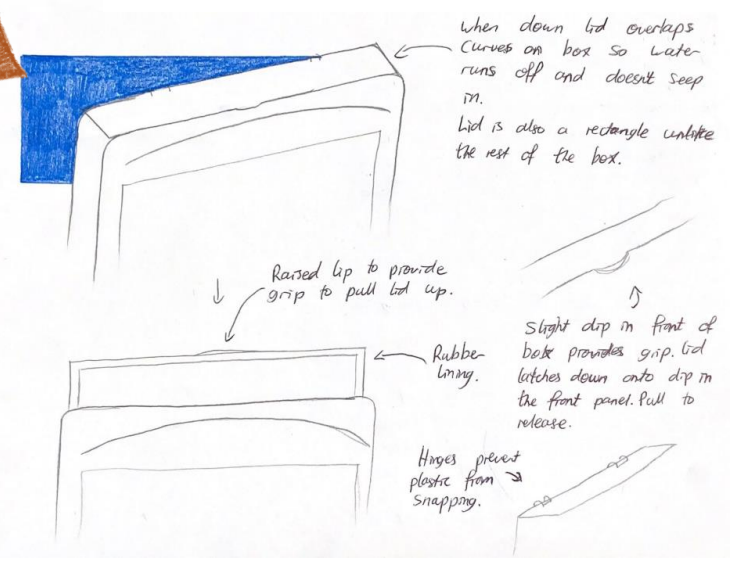 when down lid overlaps
Curves on box so water
runs off and doesnt seep
in.
Lid is also a rectangle unlike
the rest of the box.
Raised lip to provide
grip to pull lid up.
Rubber
lining.
Slight dip in front of
box provides grip. Lid
latches down onto dip in
the front panel. Pull to
release.
Hinges prevent
plastic from
snapping.